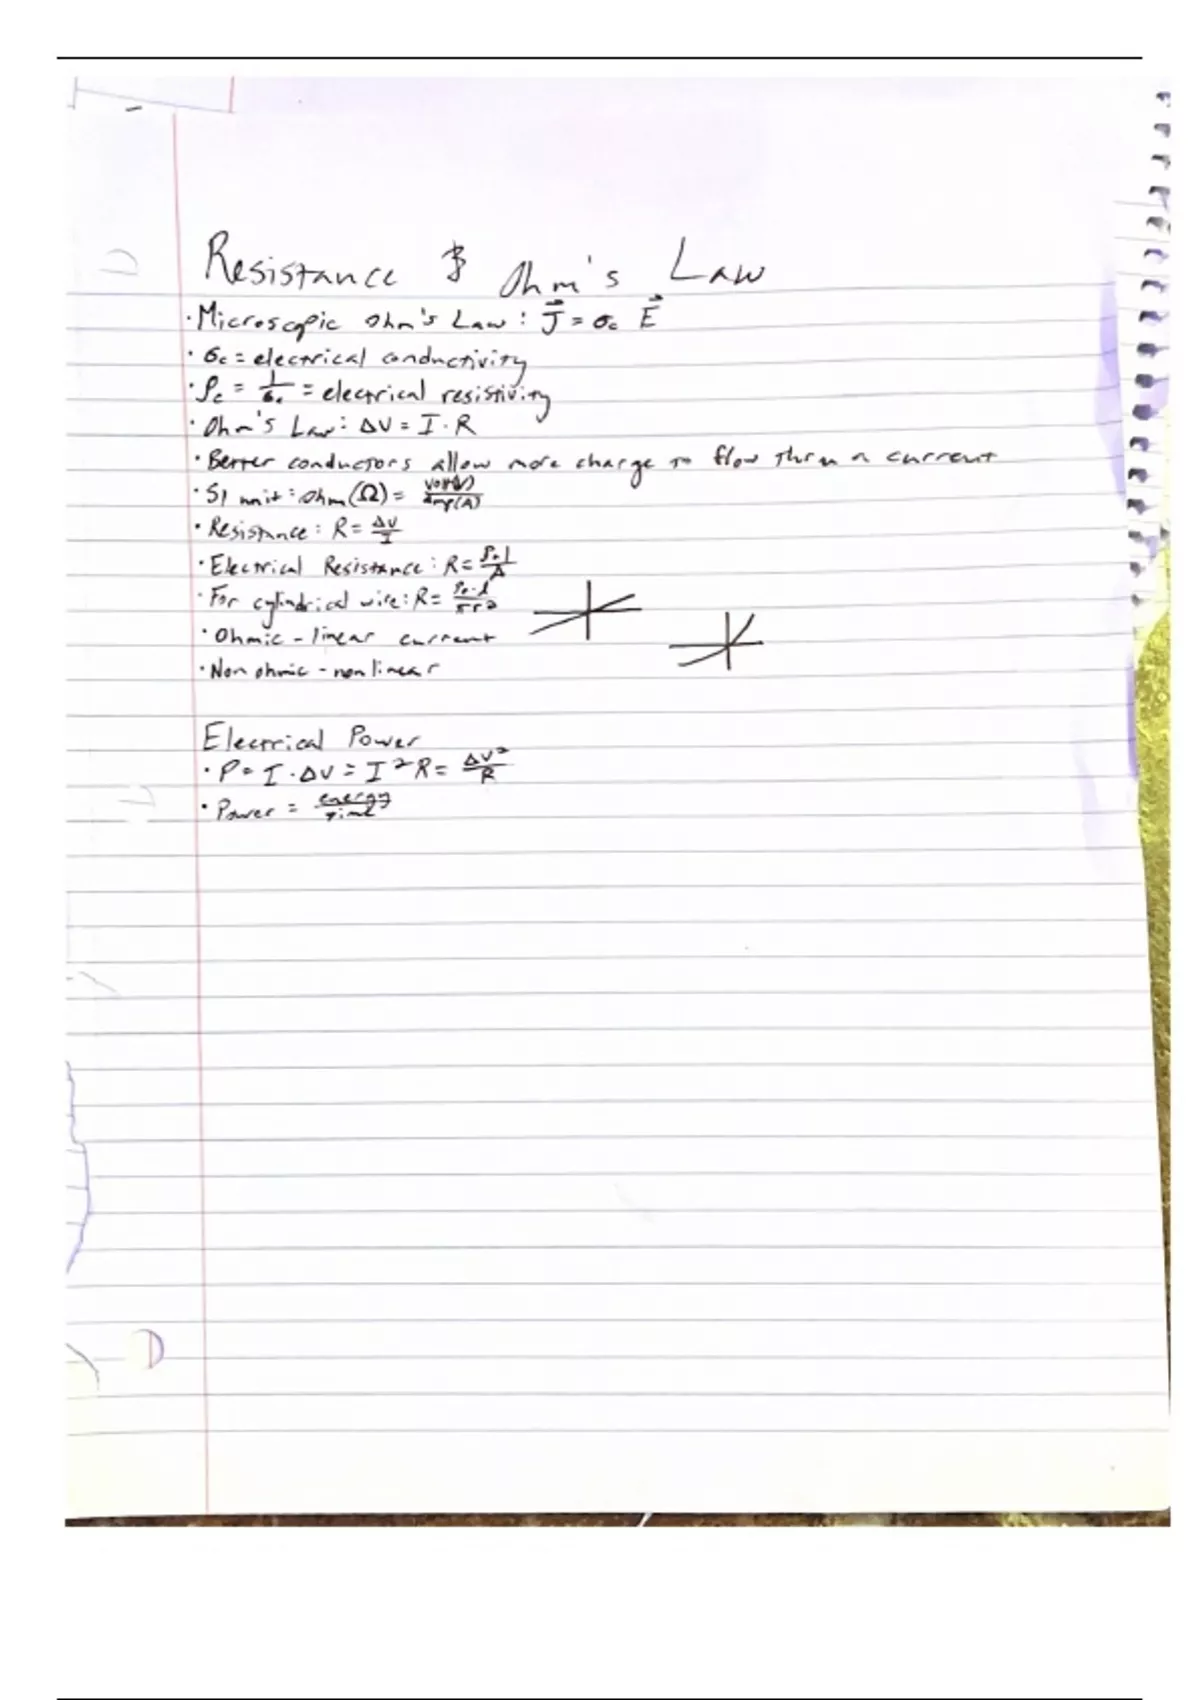 Resistance & Ohm's Law
· Microscopic Ohm's Law: J⃗ = σc E⃗
· σc = electrical conductivity
· ρc = 1/σc = electrical resistivity
· Ohm's Law: ΔV = I · R
· Better conductors allow more charge to flow thru a current
· SI unit: Ohm (Ω) = volt(V)/amp(A)
· Resistance: R = ΔV/I
· Electrical Resistance: R = ρc·l/A
· For cylindrical wire: R = ρc·l/πr²
· Ohmic - linear current
· Non ohmic - non linear
Electrical Power
· P = I · ΔV = I²R = ΔV²/R
· Power = energy/time